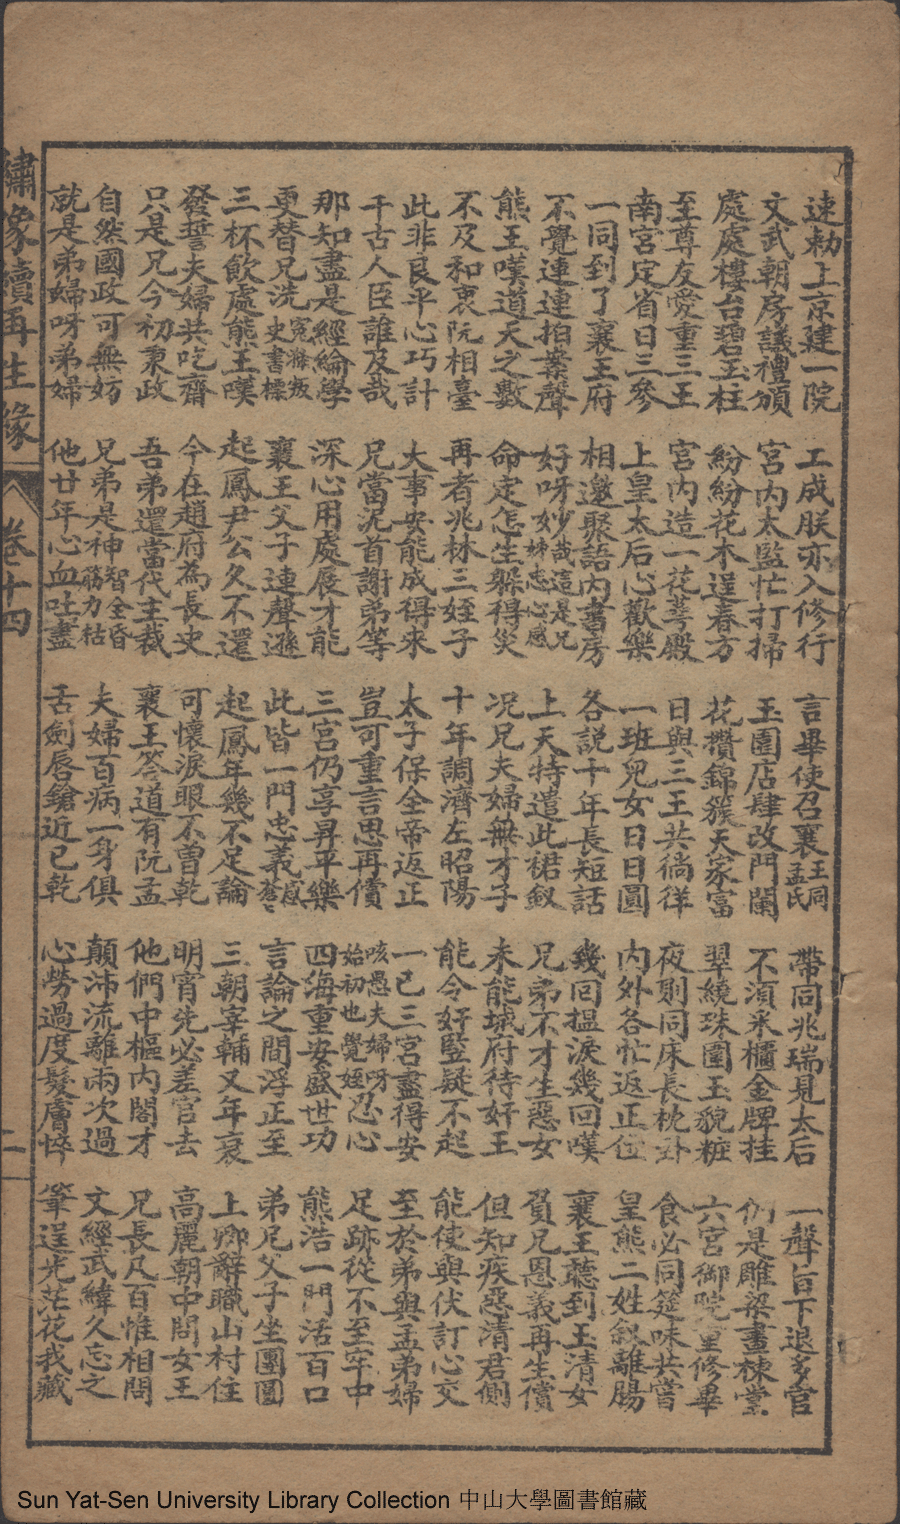 速勅上京建一院 工成朕亦入修行 言畢使召襄王同孟氏 帶同兆瑞見太后 一聲旨下退多官
文武朝房議禮頒 宮内太監忙打掃 玉園店肆改門闌 不須米櫃金牌挂 仍是雕梁畫棟堂
處處樓台碧玉柱 紛紛花木逞春方 花攢錦簇天家富 翠繞珠圍玉貌粧 六宮御院重修畢
至尊友愛重三王 宮内造一花萼殿 日與三王共徜徉 夜則同床長枕卧 食必同筵味共嘗
南宮定省日三參 上皇太后心歡樂 一班兒女日日圓 内外各忙返正位 皇熊二姓叙離腸
一同到了襄王府 相邀聚語内書房 各説十年長短話 幾回揾淚幾回嘆 襄王聽到玉清女
不覺連連拍案聲 好呀妙哉這是兄姊忠心感 上天特遣此裙釵 兄弟不才生惡女 負兄恩義再生償
熊王嘆道天之數 命定怎生躲得災 况兄夫婦無才子 未能城府待奸王 但知疾惡清君側
不及和衷阮相臺 再者兆林三姪子 十年調濟左昭陽 能令奸監疑不起 能使與伏訂心交
此非良平心巧計 大事安能成得來 太子保全帝返正 一已三宮盡得安 至於弟與孟弟婦
千古人臣誰及哉 兄當泥首謝弟等 豈可重言思再償 咳愚夫婦呀始初也覺姪忍心 足跡從不至牢中
那知盡是經綸學 深心用處展才能 三宮仍享昇平樂 四海重安盛世功 熊浩一門活百口
更替兄洗冤難叛史書標 襄王父子連聲遜 此皆一門忠義感蒼天 言論之間浮正至 弟兄父子坐團圓
三杯飲處熊王嘆 起鳳尹公久不還 起鳳年幾不足論 三朝宰輔又年衰 上卿辭職山村住
發誓夫婦共吃齋 今在趙府為長史 可懷淚眼不曾乾 明宵先必差官去 高麗朝中問女王
只是兄今初秉政 吾弟還當代主裁 襄王答道有阮孟 他們中樞内閣才 兄長凡百惟相問
自然國政可無妨 兄弟是神智全昏筋力枯 夫婦百病一身俱 顛沛流離兩次過 文經武緯久忘之
就是弟婦呀弟婦 他廿年心血吐盡 舌劍唇鎗近已乾 心勞過度髮膚悴 筆逞光芒花我藏
繡像續再生緣 卷十四 二
Sun Yat-Sen University Library Collection 中山大學圖書館藏